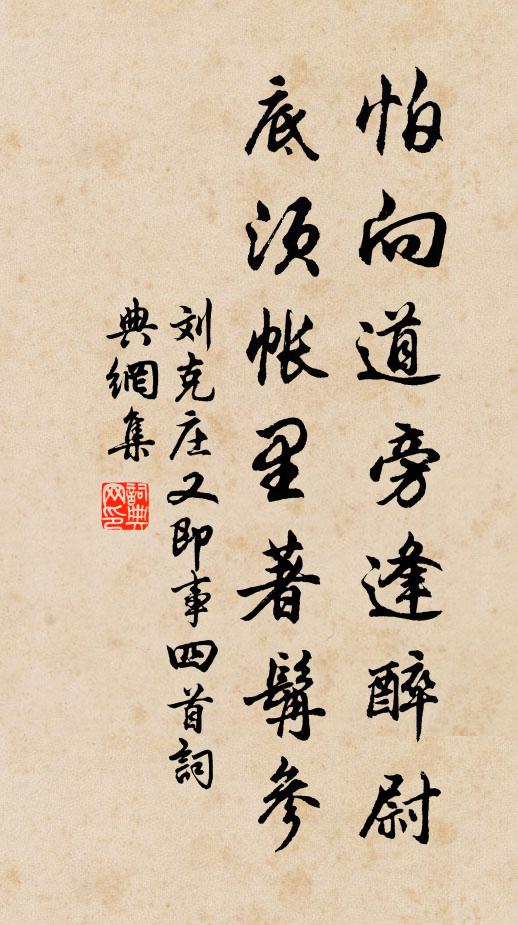 怕向道旁逢醉尉
底须帐里著髯参
刘克庄又即事四首詞
典網集
詞典网印